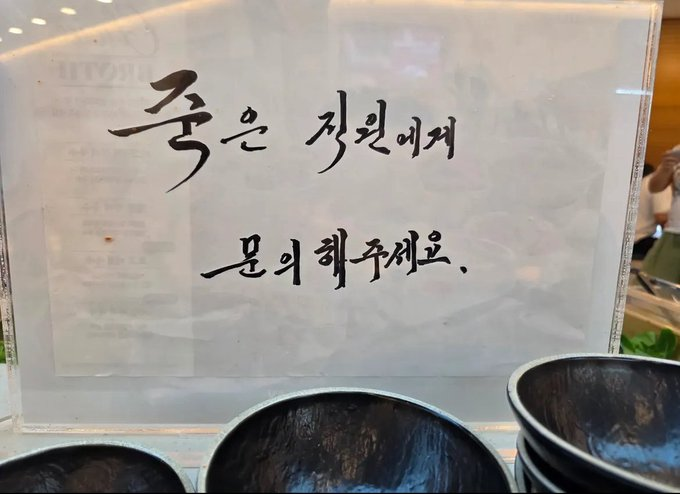 죽은 직원에게
문의해주세요.
BROTH